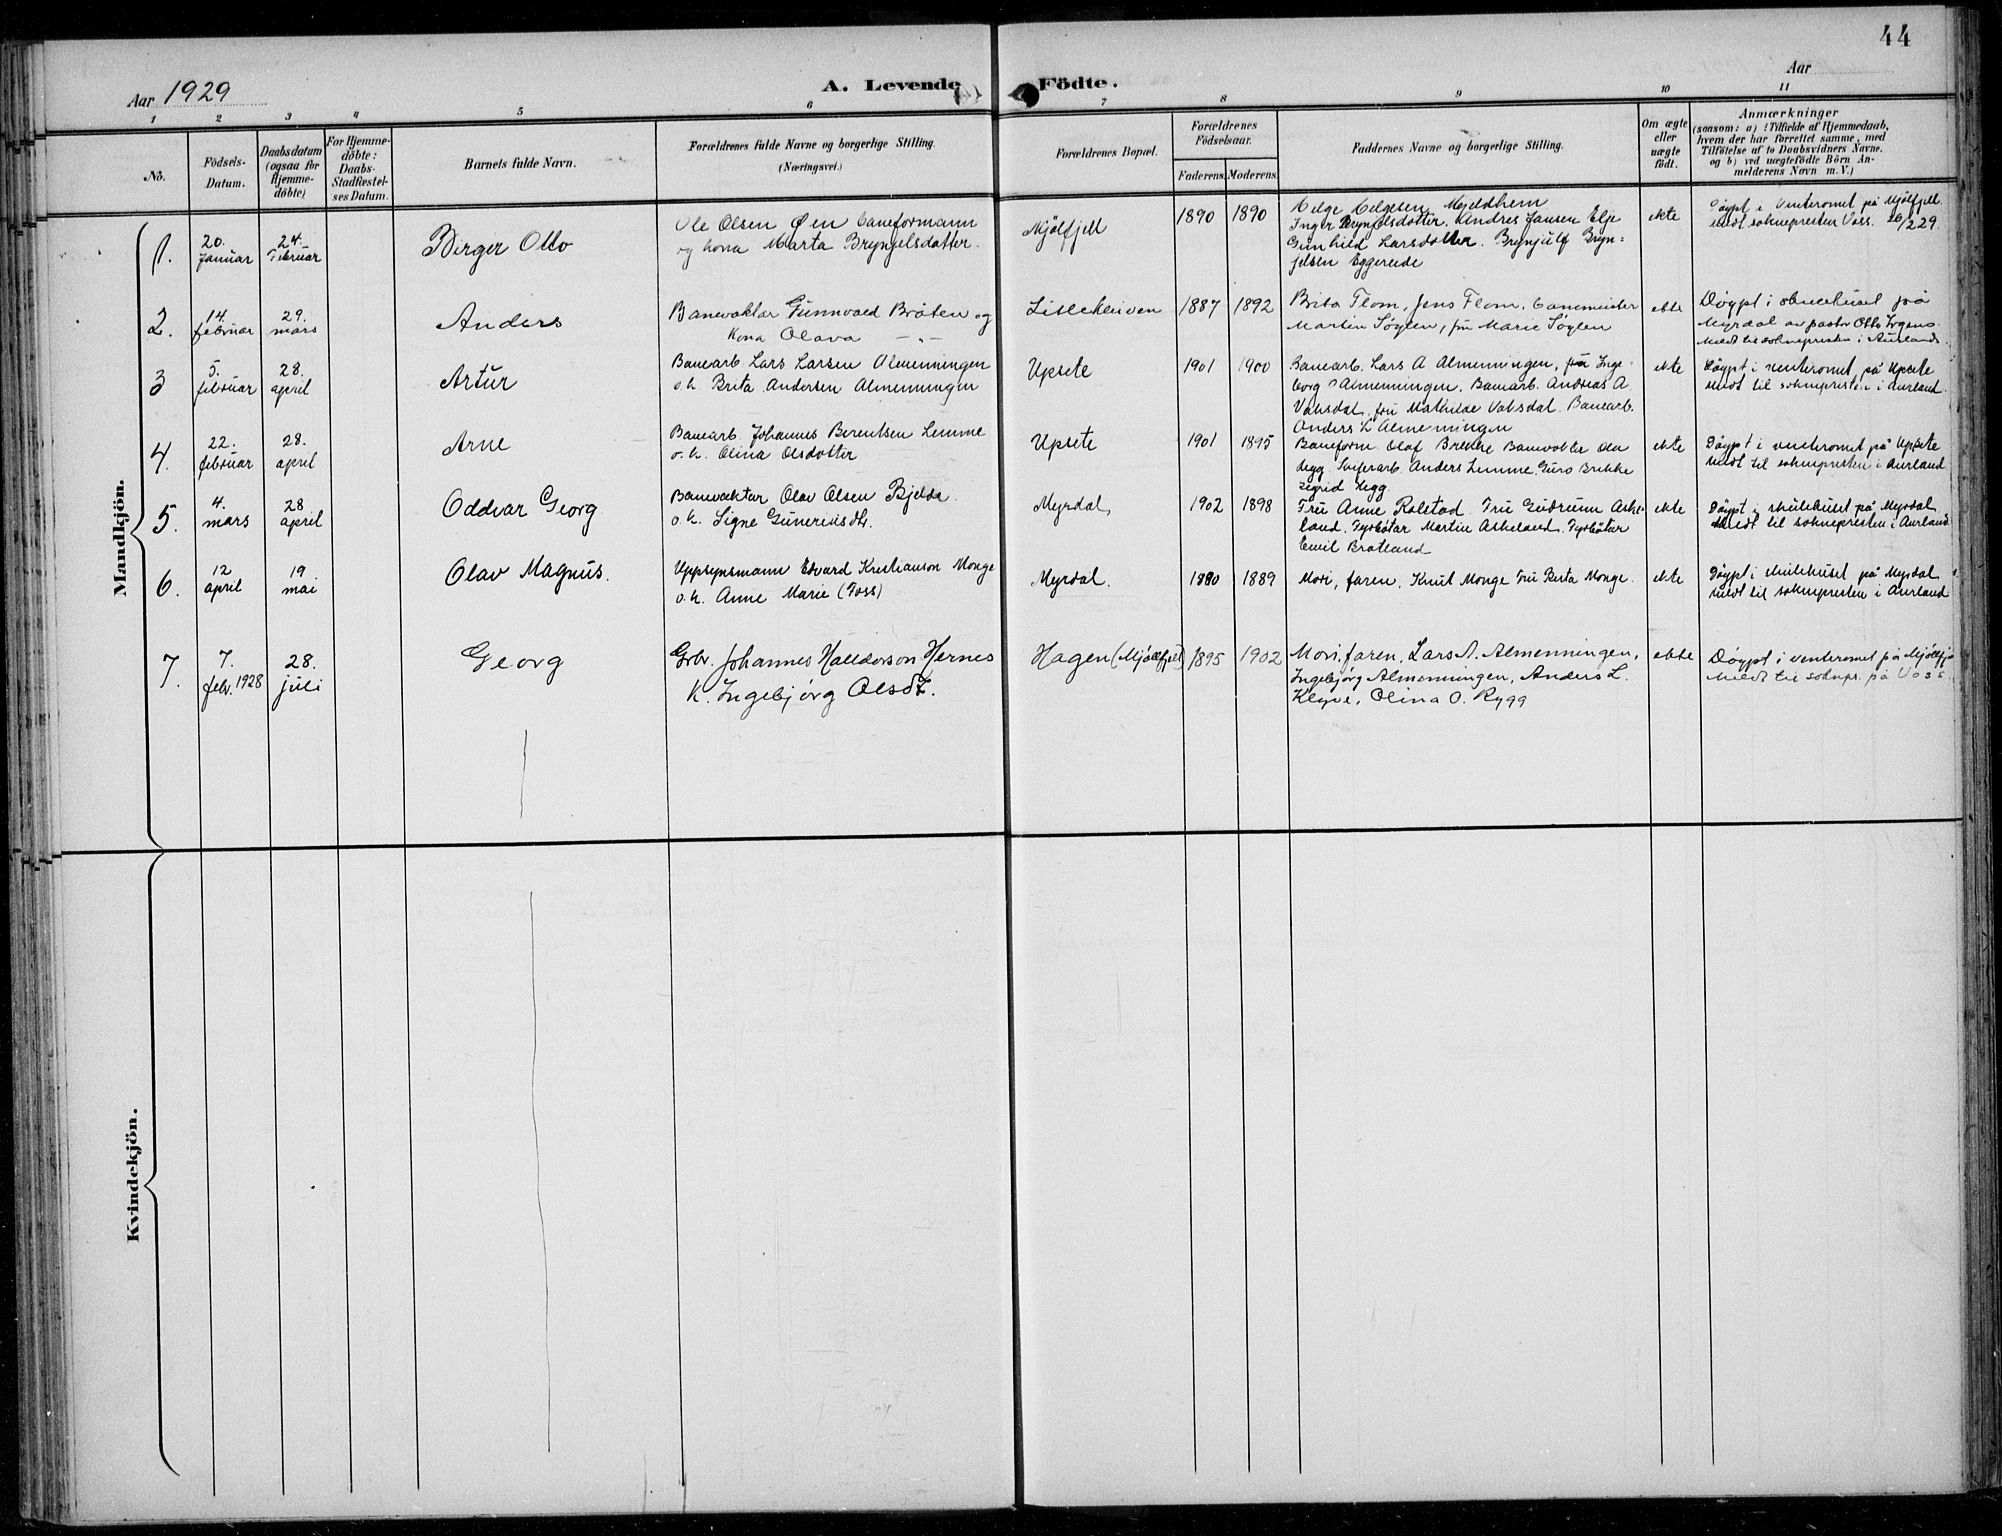 44
Aar 1929
A. Levende Födte.
Aar
1 2 3 4 5 6 7 8 9 10 11
No.
Födsels-Datum.
Daabsdatum (ogsaa for Hjemme-döbte)
For Hjemme-döbte: Daabs-Stadfæstel-ses Datum.
Barnets fulde Navn.
Forældrenes fulde Navne og borgerlige Stilling.
(Næringsvei.)
Forældrenes Bopæl.
Forældrenes Födselsaar.
Faderens. Moderens.
Faddernes Navne og borgerlige Stilling.
Om ægte eller uægte født.
Anmærkninger
(saasom: a) i Tilfælde af Hjemmedaab,
hvem der har forrettet samme, med
Tilföielse af to Daabsvidners Navne,
og b) ved uægtefödte Börn An-
melderens Navn m. V.)
Mandkjön.
1. 20. Januar 24. Februar Birger Otto
Ole Olsen Øen baneformann
og kona Marta Bryngelsdatter.
Mjølfjell 1890 1890
Helge Helgesen Mjeldhem
Inger Brynjelsdotter. Andres Jansen Elje
Gunhild Larsdotter. Brynjulf Bryn-
jelsen Eggereide
ekte
Døypt i venteromet på Mjølfjell
Meldt soknepresten Voss. 26/2 29.
2. 14. februar 29. mars Anders
Banevaktar Gunnvald Bråten og
Kona Olava —"—
Lillekleiven 1887 1892
Brita Flom, Jens Flom, banemeister
Martin Søglen, fru Marie Søglen
ekte
Døypt i skulehuset på
Myrdal av pastor Otto Irgens.
Meldt til soknepresten i Aurland.
3 5. februar 28. april Artur
Banearb. Lars Larsen Almenningen
o.k. Brita Andersen Almenningen
Upsete 1901 1900
Banearb. Lars A Almenningen, fru Inge-
borg Almenningen. Banearb. Andreas A
Vaksdal. fru Mathilde Vaksdal. Banearb.
Anders L Almenningen
ekte
Døypt i venteromet på Upsete
Meldt til soknepresten i Aurland.
4. 22. februar 28. april Arne
Banearb. Johannes Berentsen Lemme
o.k. Olina Olsdotter
Upsete 1901 1895
Baneform. Olaf Brekke Banevokter Ola
Hegg. Anders Lemme. Guro Brekke
Sigrid Hegg.
ekte
Døypt i venteromet på Upsete
Meldt til soknepresten i Aurland
5. 4. mars 28 april Oddvar Georg
Banevaktar Olav Olsen Bjelde
o.k. Signe
Myrdal 1902 1898
Fru Anne Rolstad. Fru Gudrunn Aske-
land. Fyrbøtar Martin Askeland. Fyrbøtar
Emil Bratland
ekte
Døypt i skulehuset på Myrdal
Meldt til soknepresten i Aurland
6. 12 april 19 mai Olav Magnus.
Uppsynsmann Edvard Kristianson Monge
o.k. Anne Marie (Foss)
Myrdal. 1880 1889
Mori, faren, Knut Monge Fru Brita Monge.
ekte
Døypt i skulehuset på Myrdal
Meldt til soknepresten i Aurland
7. 7. febr. 1928 28. juli Georg
Grbr. Johannes Halldorson Hernes
k. Ingebjørg Olsdt.
Hagen (Mjøllfjell) 1895 1902
Mori, faren, Lars A. Almenningen,
Ingebjørg Almenningen, Anders L.
Klyve, Olina O. Rygg
ekte
Døypt i venteromet på Mjøllfj.
Meldt til sokнepr. på Voss.
Kvindekjön.